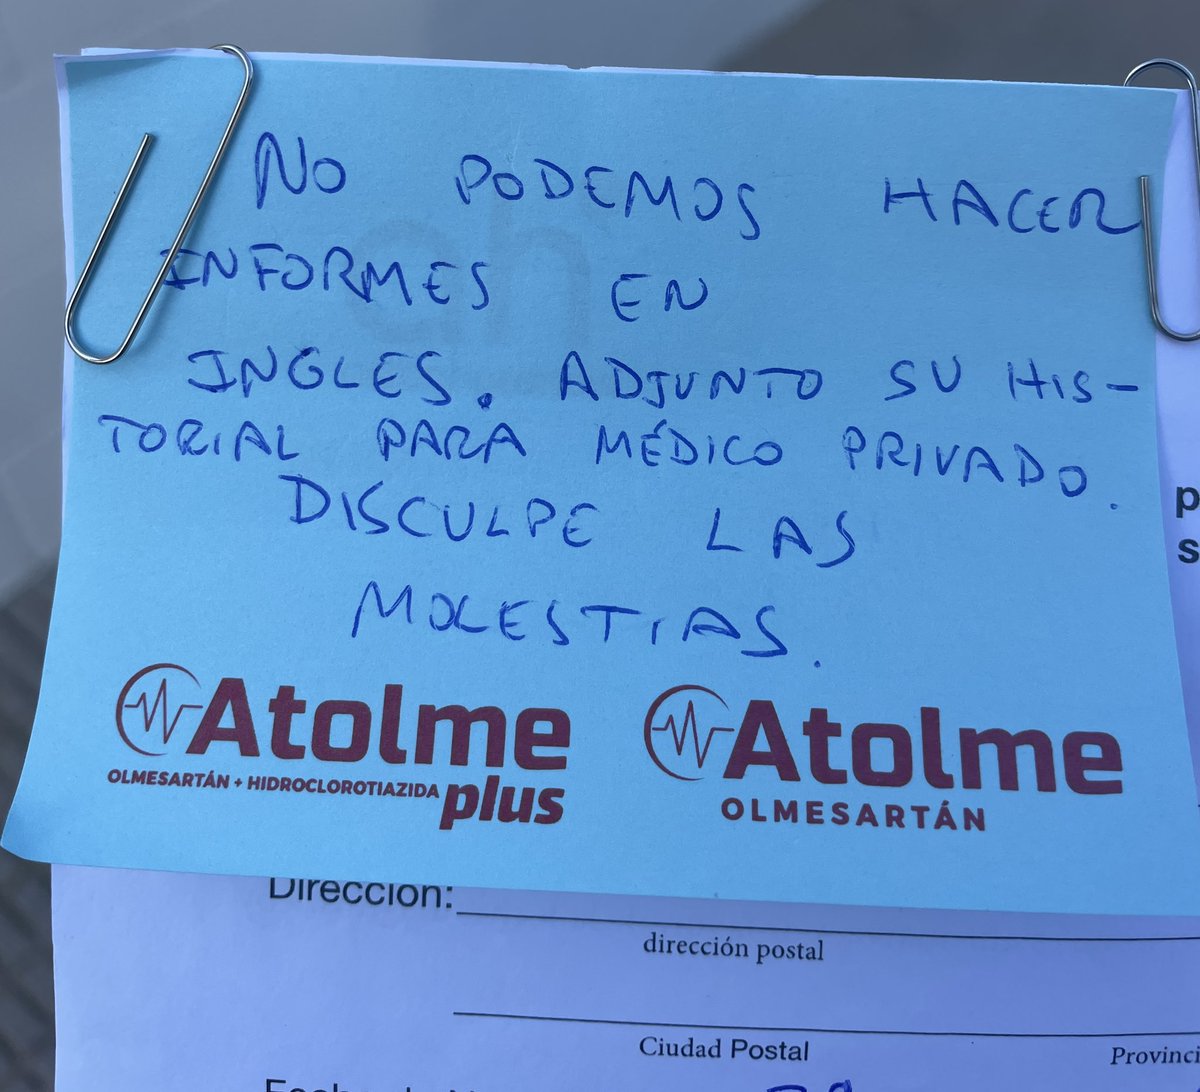 NO PODEMOS HACER
INFORMES EN
INGLES. ADJUNTO SU HIS-
TORIAL PARA MÉDICO PRIVADO.
DISCULPE LAS
MOLESTIAS.
Atolme
OLMESARTÁN + HIDROCLOROTIAZIDA plus
Atolme
OLMESARTÁN
p
s
Dirección:
dirección postal
Ciudad Postal
Provinci